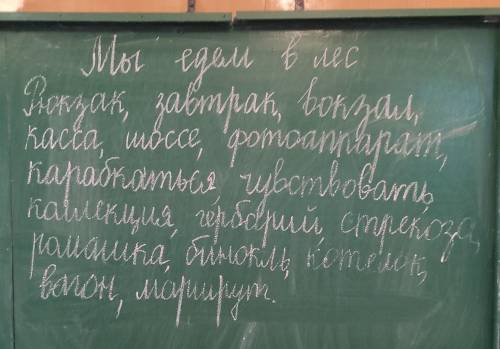 Мы едем в лес
Рюкзак, завтрак, вокзал,
касса, шоссе, фотоаппарат,
карабкаться чувствовать,
каллекция, гербарий, стрекоза,
ромашка, бинокль, котелок,
вагон, маршрут.